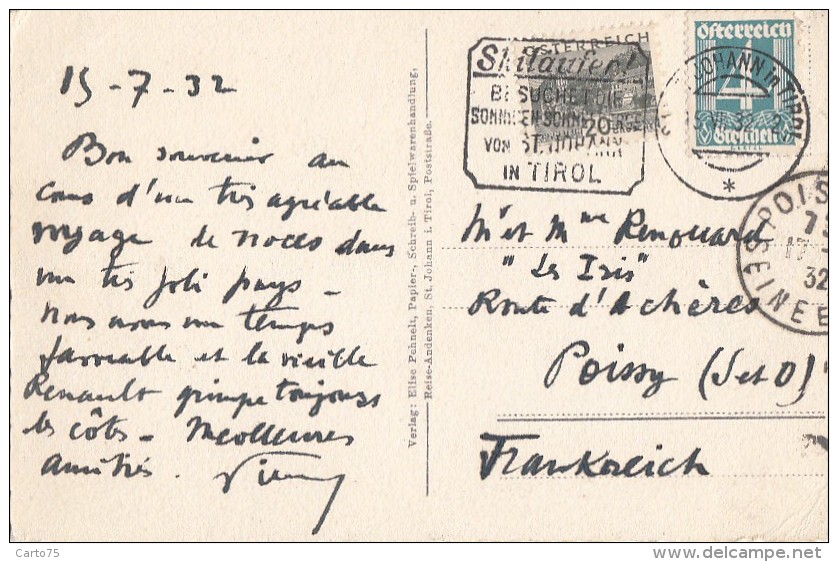 15-7-32
Bon souvenir au
cours d'un très agréable
voyage de noces dans
un très joli pays -
nous avons un temps
favorable et la vieille
Renault grimpe toujours
les côtes - Meilleures
amitiés.
Verlag: Elise Pehnelt, Papier-, Schreib- u. Spielwarenhandlung,
Reise-Andenken, St. Johann i. Tirol, Poststraße.
Skiläufer!
BESUCHET DIE
VON ST. JOHANN
IN TIROL
ÖSTERREICH
20
Österreich
4
Groschen
JOHANN in TIROL
*
POIS
SEINE
32
Mr et Mme Renouard
"Les Iris"
Route d'Achères
Poissy (S et O)
Frankreich
Carto75
www.delcampe.net